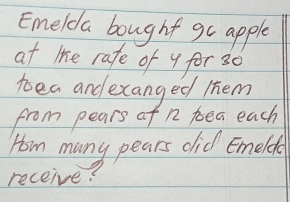 Emelda bought 90 apple
at the rate of 4 for 30
toea and exanged them
from pears at 12 toea each
How many pears did Emelda
receive?